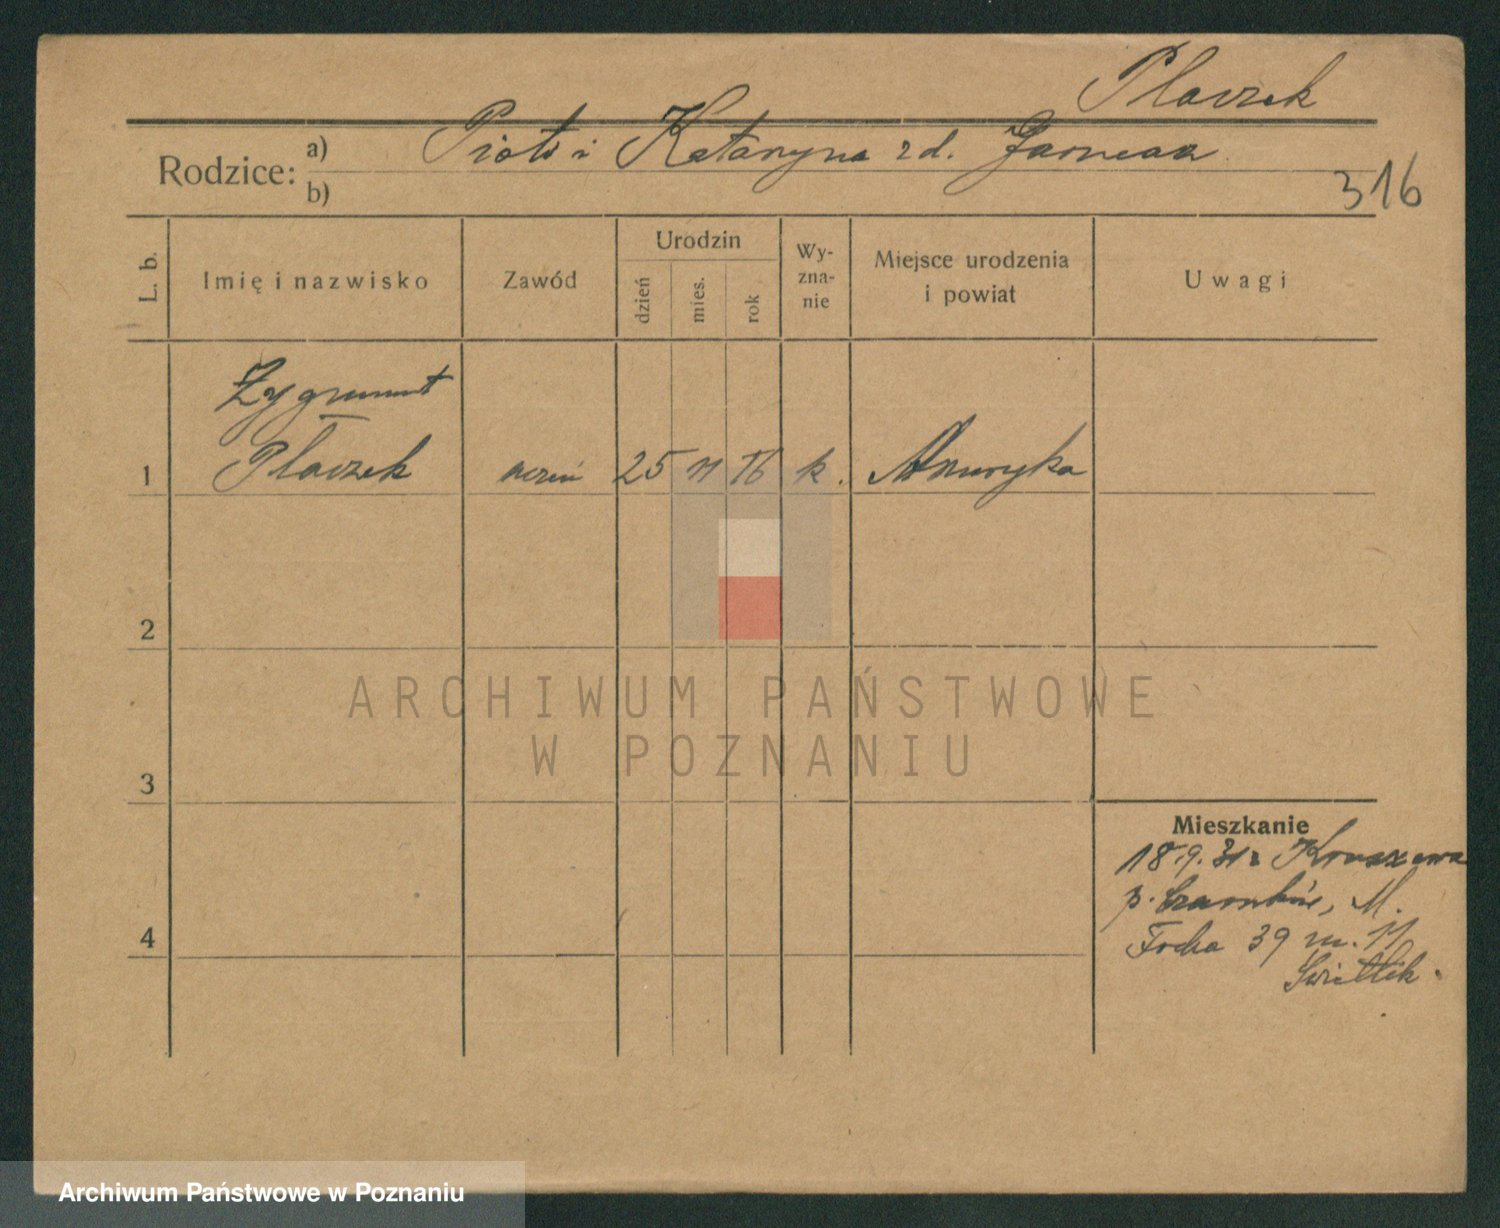 Placzek
Rodzice: a) Piotr i Katarzyna zd.
b)
316
L. b.
Imię i nazwisko
Zawód
Urodzin
dzień
mies.
rok
Wy-
zna-
nie
Miejsce urodzenia
i powiat
Uwagi
Zygmunt
1 Płaczek uczeń 25 11 16 k. Ameryka
2
ARCHIWUM PAŃSTWOWE
W POZNANIU
3
Mieszkanie
18.9.31 z Kruszewa
p. Czarnków, M.
4
Focha 39 m. 11
Świetlik.
Archiwum Państwowe w Poznaniu